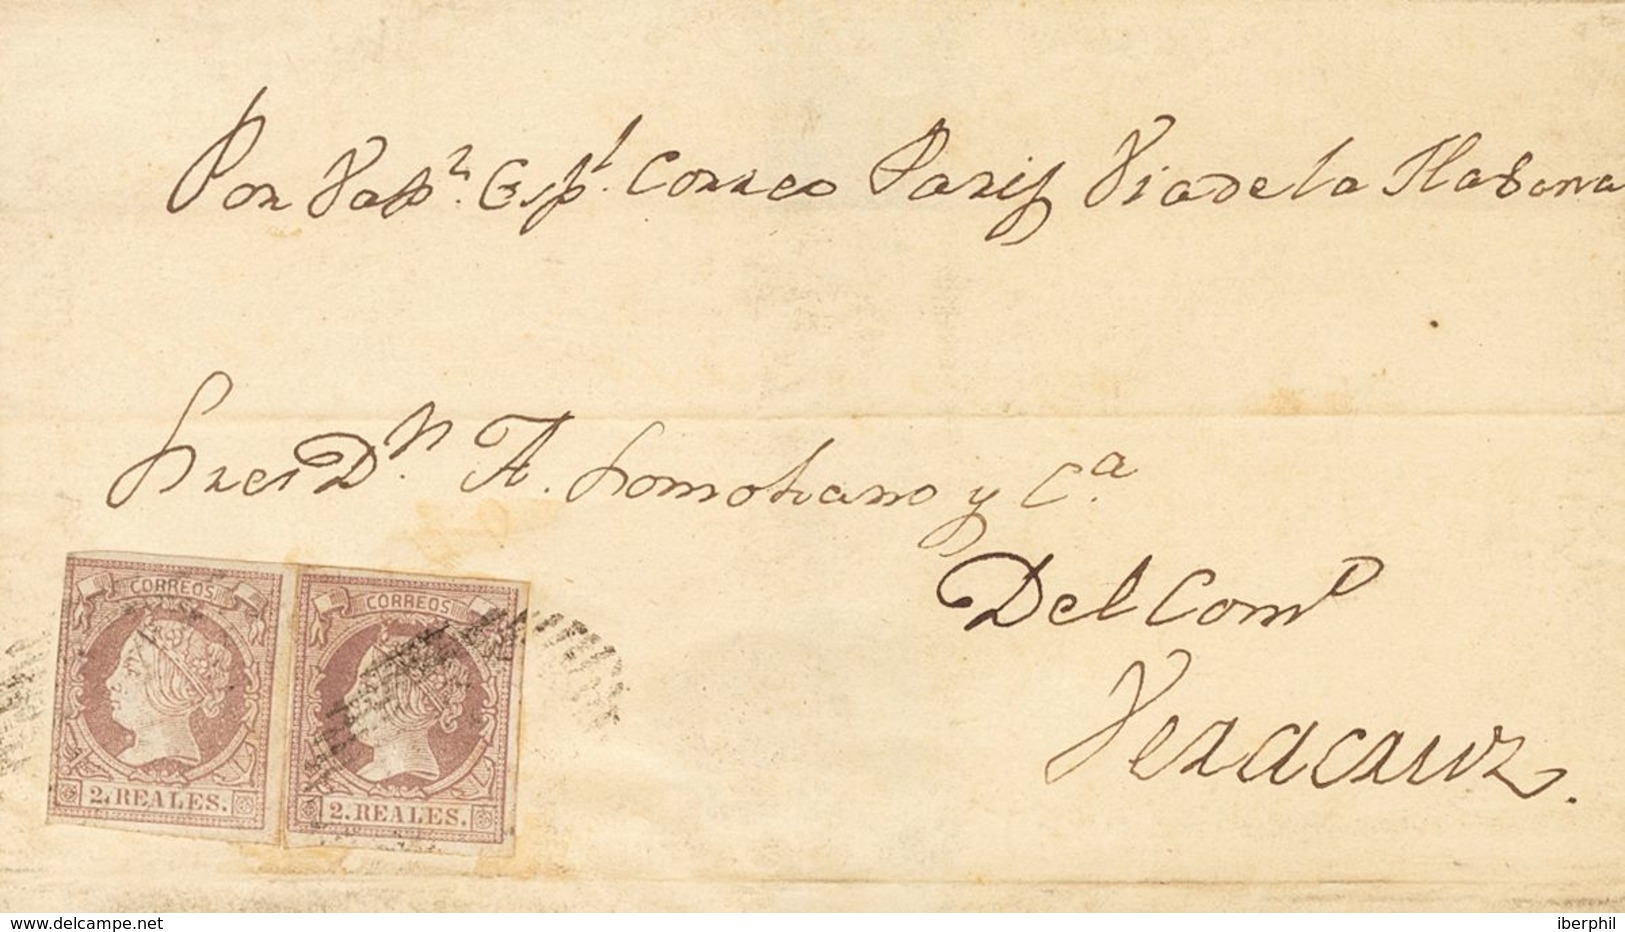 Por Vap.r Esp.l Correo Paris Via de la Habana
Sres D.n A. Somohano y C.a
Del Com.o
Veracruz.
CORREOS
2. REALES.
CORREOS
2. REALES.
www.delcampe.net
iberphil